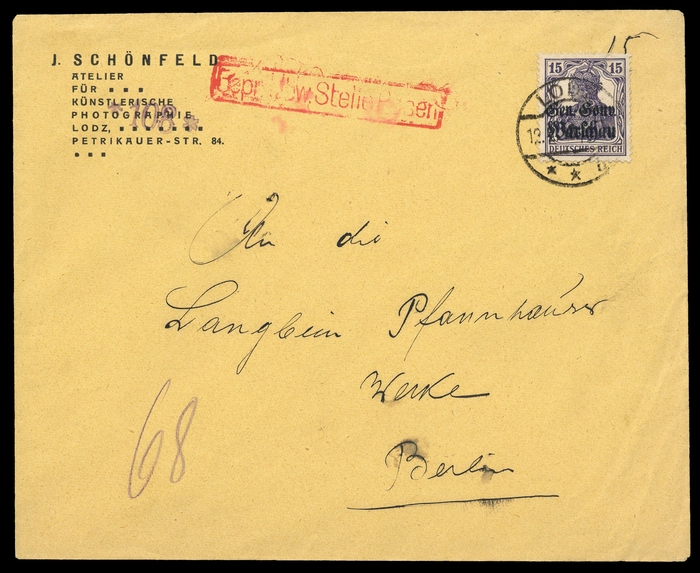 J. SCHÖNFELD
ATELIER
FÜR
KÜNSTLERISCHE
PHOTOGRAPHIE
LODZ,
PETRIKAUER-STR. 84.
108
Stelle Posen
15
15 15
Gen.-Gouv.
Warschau
DEUTSCHES REICH
LOD
12.
An die
Langbein Pfannhauser
Werke
Berlin
68